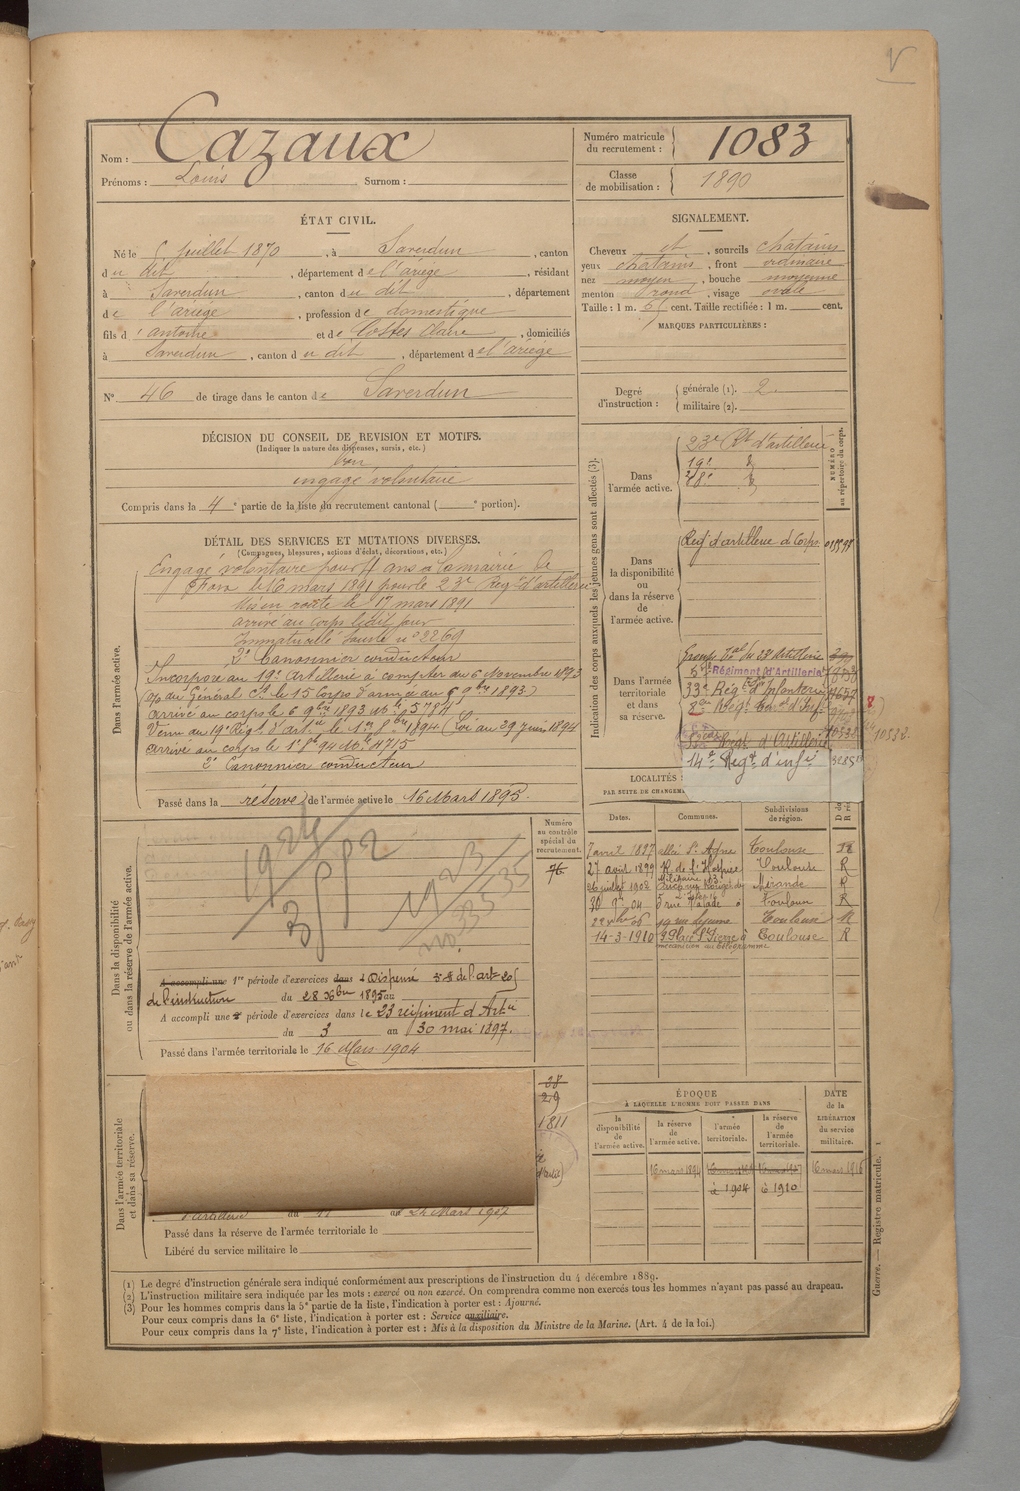 V
Nom : Cazaux
Prénoms : Louis Surnom :
Numéro matricule du recrutement : 1083
Classe de mobilisation : 1890
ÉTAT CIVIL.
Né le 5 Juillet 1870, à Saverdun, canton
du dit, département de l'ariège, résidant
à Saverdun, canton du dit, département
de l'ariège, profession de domestique
fils d'antoine et de Costes Claire, domiciliés
à Saverdun, canton du dit, département de l'ariège
N° 46 de tirage dans le canton de Saverdun
SIGNALEMENT.
Cheveux et, sourcils chatains
yeux chatains, front ordinaire
nez moyen, bouche moyenne
menton rond, visage ovale
Taille : 1 m. cent. Taille rectifiée : 1 m. cent.
MARQUES PARTICULIÈRES :
Degré d'instruction : générale (1). 2.
militaire (2).
DÉCISION DU CONSEIL DE REVISION ET MOTIFS.
(Indiquer la nature des dispenses, sursis, etc.)
bon
engagé volontaire
Compris dans la 4e partie de la liste du recrutement cantonal ( e portion).
DÉTAIL DES SERVICES ET MUTATIONS DIVERSES.
(Campagnes, blessures, actions d'éclat, décorations, etc.)
Dans l'armée active.
Engagé volontaire pour 4 ans à la mairie de
Foix le 16 mars 1891 pour le 23e Regt d'artillerie
Mis en route le 17 mars 1891
arrivé au Corps ledit jour
Immatriculé sous le n° 2269
2e Canonnier conducteur
Incorporé au 19e Artillerie à compter du 6 Novembre 1893
du Général Ct le 15 Corps d'armée du 6 9bre 1893)
arrivé au corps le 6 9bre 1893 Mle 5784
Venu au 19e Régt d'art. le 1er 8bre 1894 (Loi du 29 juin 1894
arrivé au corps le 1er 94 Mle 1715
2e Canonnier conducteur
Passé dans la réserve de l'armée active le 16 Mars 1895.
Indication des corps auxquels les jeunes gens sont affectés (3).
NUMÉRO au répertoire du corps.
Dans l'armée active.
23e Rt d'artillerie
19e d
Dans la disponibilité ou dans la réserve de l'armée active.
Reg d'artillerie d Corps
Dans l'armée territoriale et dans sa réserve.
Groupe Tal du 23 Artillerie
5e Régiment d'Artillerie
33e Rég d'Infanterie
Régt d'Artillerie
10532
14e Regt d'infie
LOCALITÉS
PAR SUITE DE CHANGEM
Dates. Communes. Subdivisions de région.
7 avril 1897 allée St Agne Toulouse
27 août 1899 R. de l'Hospice Militaire Toulouse R
26 juillet 1902 Mirande R
30 04 5 rue Toulouse R
06 19 rue Toulouse R
14-3-1910 9 Place St Pierre à Toulouse R
Numéro au contrôle spécial du recrutement.
76
Dans la disponibilité ou dans la réserve de l'armée active.
A accompli une 1re période d'exercices dans Dispensé
de l'instruction du 28 Xbre 1895 au
A accompli une 2e période d'exercices dans le 23 régiment d'Artie
du 3 au 30 mai 1897.
Passé dans l'armée territoriale le 16 Mars 1904
Dans l'armée territoriale et dans sa réserve.
38
29
1811
du 11 au 24 Mars 1907
Passé dans la réserve de l'armée territoriale le
Libéré du service militaire le
ÉPOQUE
À LAQUELLE L'HOMME DOIT PASSER DANS
la disponibilité de l'armée active. la réserve de l'armée active. l'armée territoriale. la réserve de l'armée territoriale.
DATE de la LIBÉRATION du service militaire.
16 mars 1894 16 mars 1916
à 1904 à 1910
(1) Le degré d'instruction générale sera indiqué conformément aux prescriptions de l'instruction du 4 décembre 1889.
(2) L'instruction militaire sera indiquée par les mots : exercé ou non exercé. On comprendra comme non exercés tous les hommes n'ayant pas passé au drapeau.
(3) Pour les hommes compris dans la 5e partie de la liste, l'indication à porter est : Ajourné.
Pour ceux compris dans la 6e liste, l'indication à porter est : Service auxiliaire.
Pour ceux compris dans la 7e liste, l'indication à porter est : Mis à la disposition du Ministre de la Marine. (Art. 4 de la loi.)
Guerre. — Registre matricule. 1